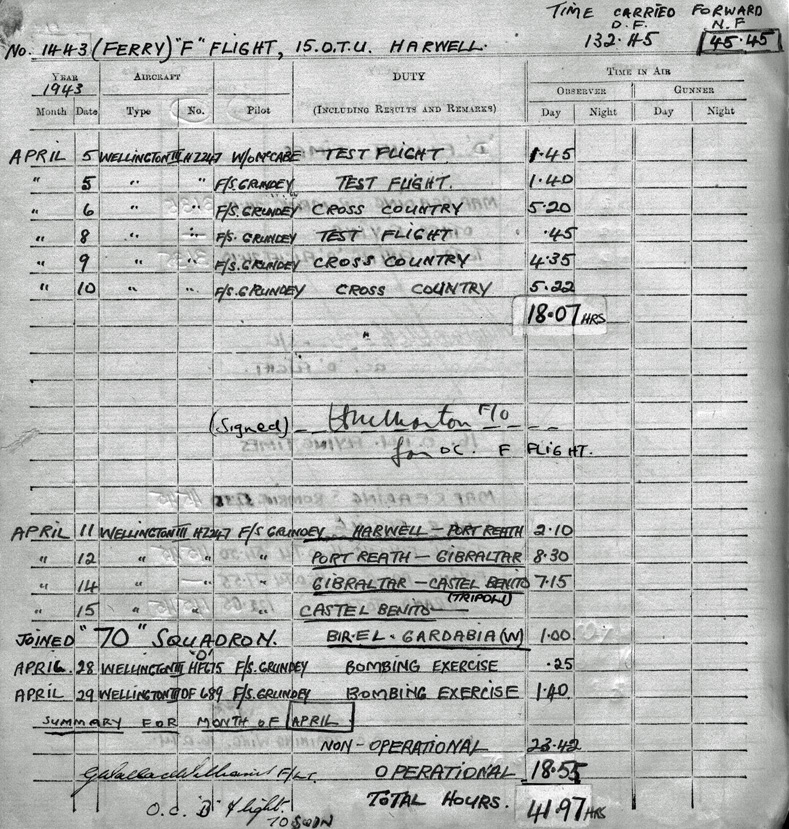 TIME CARRIED FORWARD
D.F. N.F
132.45 45.45
No. 1443 (FERRY) "F" FLIGHT, 15.O.T.U. HARWELL.
YEAR AIRCRAFT DUTY TIME IN AIR
1943 OBSERVER GUNNER
Month Date Type No. Pilot (INCLUDING RESULTS AND REMARKS) Day Night Day Night
APRIL 5 WELLINGTON III HZ247 W/O McCABE TEST FLIGHT 1.45
" 5 " " F/S. GRUNDEY TEST FLIGHT. 1.40
" 6 " " F/S. GRUNDEY CROSS COUNTRY 5.20
" 8 " " F/S. GRUNDEY TEST FLIGHT .45
" 9 " " F/S. GRUNDEY CROSS COUNTRY 4.35
" 10 " " F/S. GRUNDEY CROSS COUNTRY 5.22
18.07 HRS
(Signed) F/O
for OC. F FLIGHT.
APRIL 11 WELLINGTON III HZ247 F/S GRUNDEY HARWELL – PORT REATH 2.10
" 12 " " " PORT REATH – GIBRALTAR 8.30
" 14 " " " GIBRALTAR – CASTEL BENITO 7.15
(TRIPOLI)
" 15 " " " CASTEL BENITO –
JOINED "70" SQUADRON. BIR.EL.GARDABIA (W) 1.00
'O'
APRIL 28 WELLINGTON III HF675 F/S. GRUNDEY BOMBING EXERCISE .25
APRIL 29 WELLINGTON III DF 689 F/S. GRUNDEY BOMBING EXERCISE 1.40
SUMMARY FOR MONTH OF APRIL
NON-OPERATIONAL 23.42
F/Lt. OPERATIONAL 18.55
O.C. 'B' Flight. TOTAL HOURS. 41.97 HRS
70 SQDN